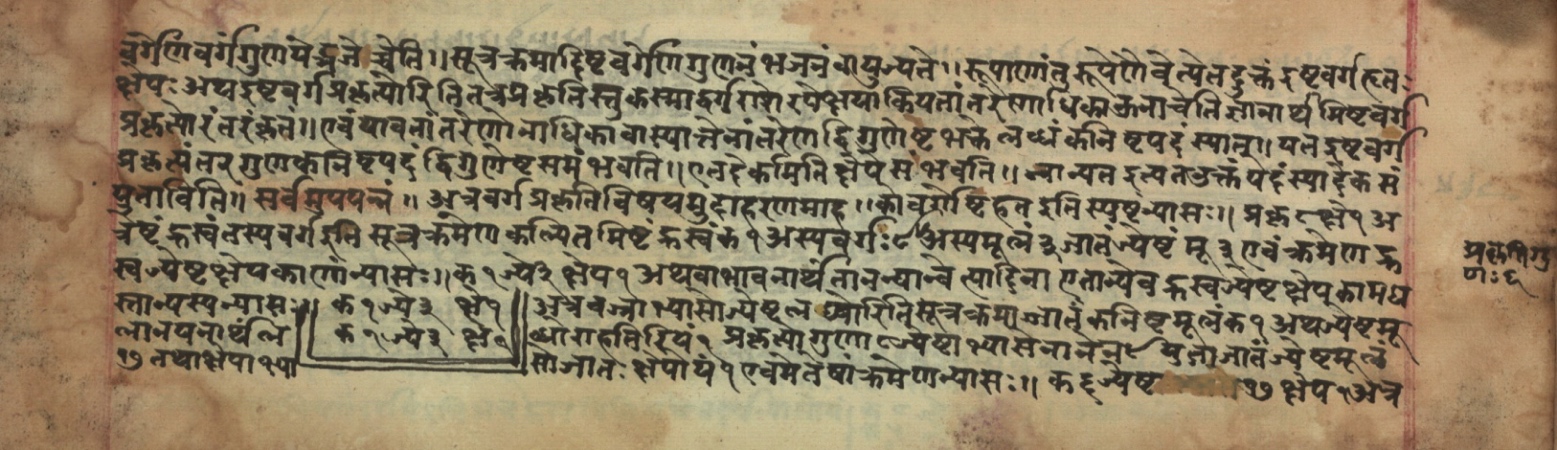 वर्गेणिवर्गगुणयेद्भजेच्चेति॥ सूत्रक्रमादिष्टवर्गेणिगुणनंभजनंवायुज्यते॥ रूपाणांतुरूपेणैवेत्येतदुक्तं इष्टवर्गहृतः
क्षेपः अथइष्टवर्गप्रकृत्योरितितत्रप्रकृतिस्तु कियतांतरेणाधिका चेतिज्ञानार्थमिष्टवर्ग
प्रकृत्योरंतरंकृतं॥ एवंयावतांतरेणोनाधिकावास्यात्तेनांतरेणद्विगुणेष्टभक्तेलब्धंकनिष्टपदंस्यात्॥ यतइष्टवर्ग
प्रकृत्यंतरगुणकनिष्टपदंद्विगुणेष्टसमंभवति॥ एतदेकमितिक्षेपेसंभवति॥ पदंस्यादेकसं
युतावितिं॥ सर्वमुपपन्नं॥ अत्रवर्गप्रकृतिविषयमुदाहरणमाह॥ कोवर्गोष्टहतइतिस्पष्टन्यासः॥ प्रकृ ८ क्षे १ अ
त्रेष्टंह्रस्वंतस्यवर्गइतिसूत्रक्रमेणकल्पितमिष्टंह्रस्वंक १ अस्यवर्गः ९ अस्यमूलं ३ जातंज्येष्टंमू ३ एवंक्रमेणह्र
स्वज्येष्टक्षेपकाणांन्यासः॥ क १ ज्ये ३ क्षेप १ अथवाभावनार्थंतानन्यान्वेत्यादिना एतान्येवह्रस्वज्येष्टक्षेपकामध
स्तान्यस्यन्यासः॥ क १ ज्ये ३ क्षे १ अत्रवज्राभ्यासौज्येष्टलघ्वोरितिसूत्रक्रमाज्जातंकनिष्टमूलंक ९ अथज्येष्टमू
लानयनार्थंल क १ ज्ये ३ क्षे १ घ्वोराहतिरियं १ प्रकृत्या गुणा ८ ज्येष्टाभ्यासेनानेन ९ युताजातंज्येष्टमूलं
१७ तथाक्षेपा सोजातः क्षेपोयं १ एवमेतेषांक्रमेणन्यासः॥ क ६ ज्येष्ट १७ क्षेप १ अत्र
प्रकृतिगु
णः ८